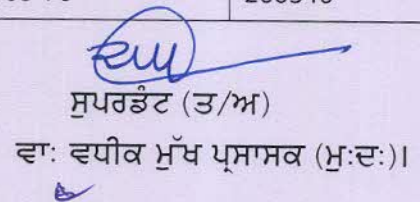 ਸੁਪਰਡੰਟ (ਤ/ਅ)
ਵਾ: ਵਧੀਕ ਮੁੱਖ ਪ੍ਰਸਾਸਕ (ਮੁ:ਦ:)।